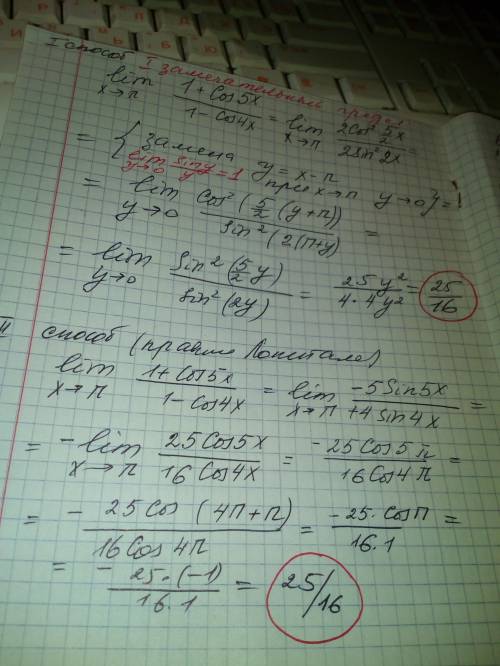 I способ I замечательный предел
lim x→π (1+cos5x)/(1-cos4x) = lim x→π (2cos² 5/2 x)/(2sin² 2x) =
= { замена y = x-π при x→π y→0 } =
lim y→0 sin y/y = 1
= lim y→0 (cos² (5/2 (y+π)))/(sin² (2(π+y)) =
= lim y→0 (sin² (5/2 y))/(sin² (2y)) = 25y²/(4·4y²) = 25/16
II способ (правило Лопиталя)
lim x→π (1+cos5x)/(1-cos4x) = lim x→π (-5sin5x)/(+4sin4x) =
= - lim x→π (25cos5x)/(16cos4x) = (-25cos5π)/(16cos4π) =
= - (25cos (4π+π))/(16cos4π) = (-25·cosπ)/(16·1) =
= - (25·(-1))/(16·1) = 25/16